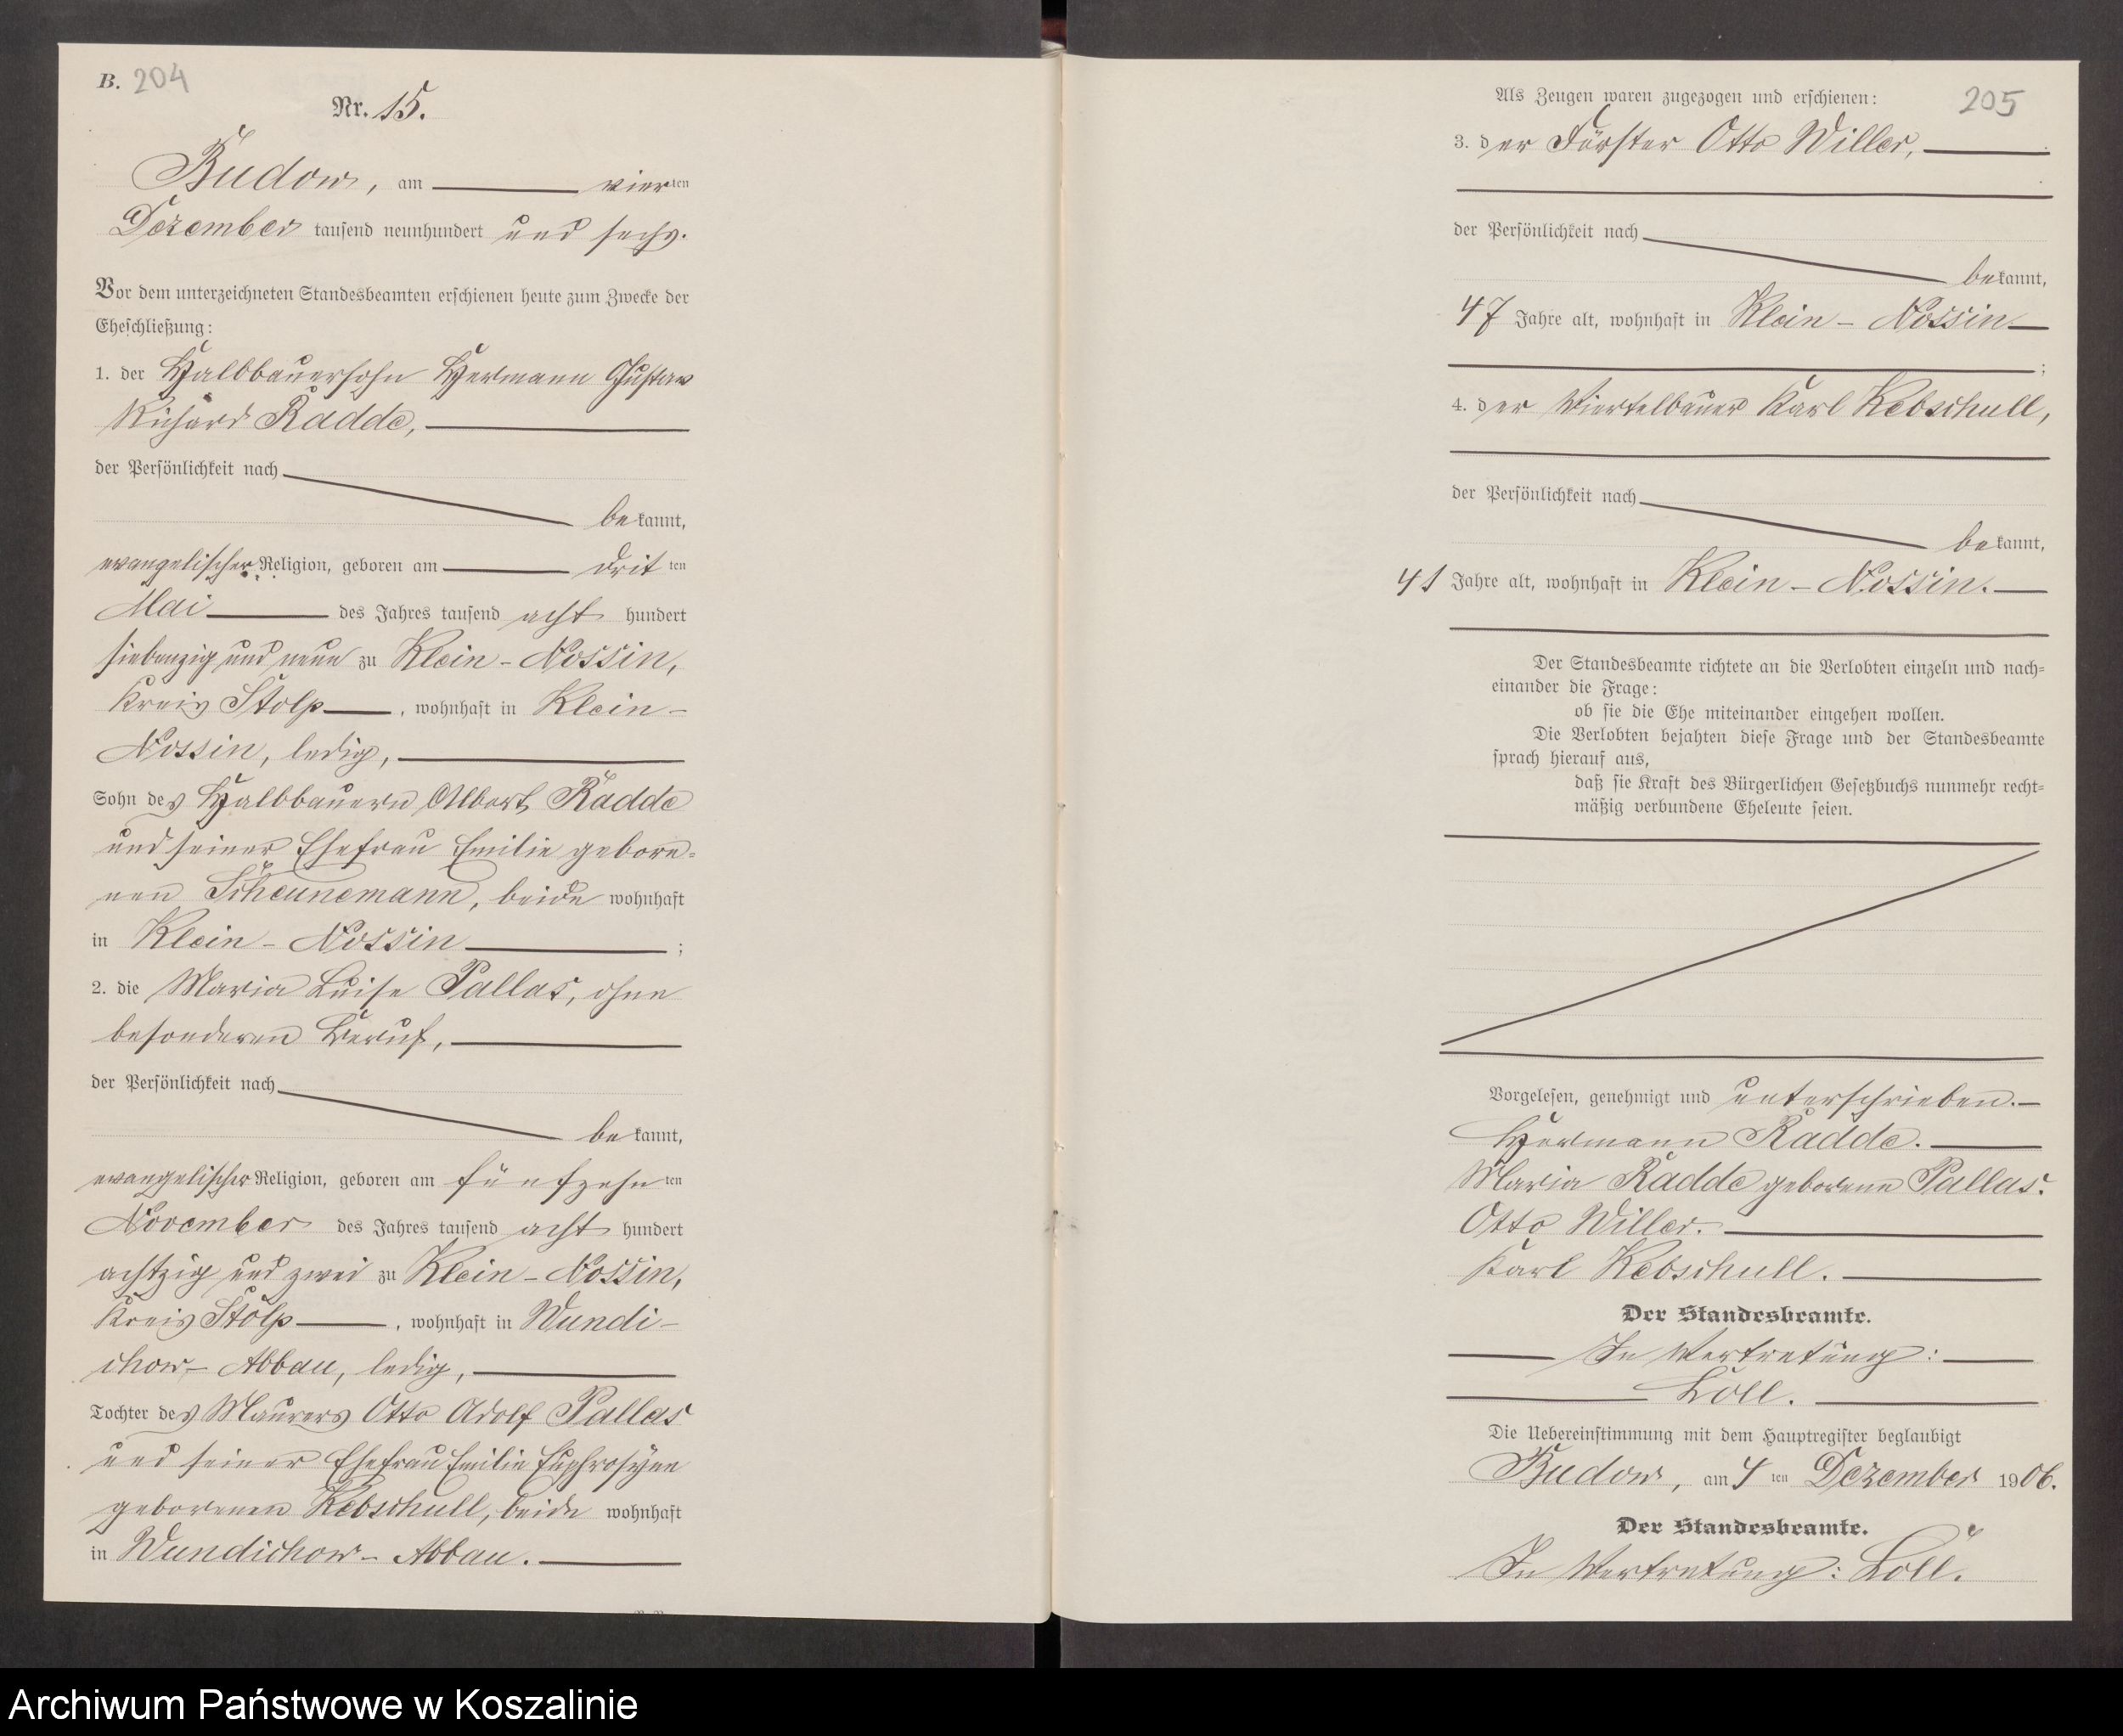 B. 204
Nr. 15.
Budow, am vierten
Dezember tausend neunhundert und sechs.
Vor dem unterzeichneten Standesbeamten erschienen heute zum Zwecke der
Eheschließung:
1. der Halbbauersohn Hermann Gustav
Richard Radde,
der Persönlichkeit nach
bekannt,
evangelischer Religion, geboren am dritten
Mai des Jahres tausend acht hundert
siebenzig und neun zu Klein-Nossin,
Kreis Stolp, wohnhaft in Klein-
Nossin, ledig,
Sohn des Halbbauern Albert Radde
und seiner Ehefrau Emilie gebore-
nen Scheunemann, beide wohnhaft
in Klein-Nossin ;
2. die Maria Luise Pallas, ohne
besonderen Beruf,
der Persönlichkeit nach
bekannt,
evangelischer Religion, geboren am fünfzehnten
November des Jahres tausend acht hundert
achtzig und zwei zu Klein-Nossin,
Kreis Stolp, wohnhaft in Wundi-
chow-Abbau, ledig,
Tochter des Maurers Otto Adolf Pallas
und seiner Ehefrau Emilie Euphrosyne
geborenen Kebschull, beide wohnhaft
in Wundichow-Abbau.
Als Zeugen waren zugezogen und erschienen: 205
3. der Förster Otto Willer,
der Persönlichkeit nach
bekannt,
47 Jahre alt, wohnhaft in Klein-Nossin
;
4. der Viertelbauer Karl Kebschull,
der Persönlichkeit nach
bekannt,
41 Jahre alt, wohnhaft in Klein-Nossin.
Der Standesbeamte richtete an die Verlobten einzeln und nach-
einander die Frage:
ob sie die Ehe miteinander eingehen wollen.
Die Verlobten bejahten diese Frage und der Standesbeamte
sprach hierauf aus,
daß sie Kraft des Bürgerlichen Gesetzbuchs nunmehr recht-
mäßig verbundene Eheleute seien.
Vorgelesen, genehmigt und unterschrieben.
Hermann Radde.
Maria Radde geborene Pallas.
Otto Willer.
Karl Kebschull.
Der Standesbeamte.
In Vertretung:
Loll.
Die Uebereinstimmung mit dem Hauptregister beglaubigt
Budow, am 4ten Dezember 1906.
Der Standesbeamte.
In Vertretung: Loll.
Archiwum Państwowe w Koszalinie